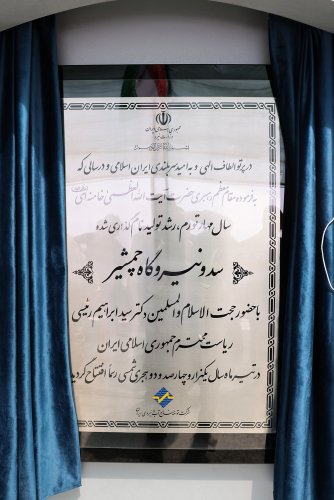 جمهوری اسلامی ایران
وزارت نیرو
در پرتو الطاف الهی و به امید سربلندی ایران اسلامی و در سالی که
به فرموده مقام معظم رهبری حضرت آیت الله العظمی خامنه ای
سال مهار تورم، رشد تولید نام گذاری شده
سد و نیروگاه چمشیر
با حضور حجت الاسلام و المسلمین دکتر سید ابراهیم رئیسی
ریاست محترم جمهوری اسلامی ایران
در تیر ماه سال یکهزار و چهارصد و دو هجری شمسی رسماً افتتاح گردید
شرکت توسعه منابع آب و نیروی ایران